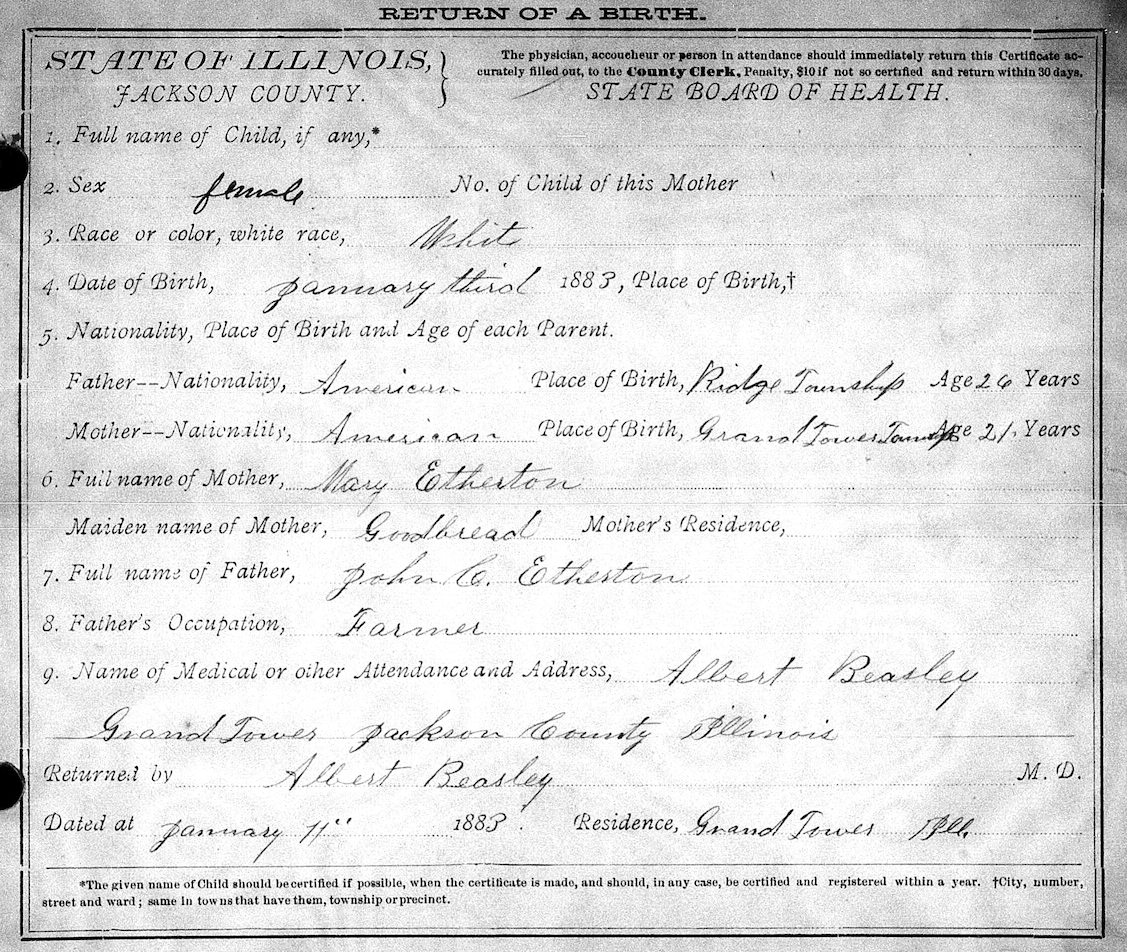 RETURN OF A BIRTH.
STATE OF ILLINOIS,
JACKSON COUNTY.
The physician, accoucheur or person in attendance should immediately return this Certificate ac-
curately filled out, to the County Clerk, Penalty, $10 if not so certified and return within 30 days.
STATE BOARD OF HEALTH.
1. Full name of Child, if any,*
2. Sex female No. of Child of this Mother
3. Race or color, white race, White
4. Date of Birth, January third 1883, Place of Birth,†
5. Nationality, Place of Birth and Age of each Parent.
Father--Nationality, American Place of Birth, Ridge Township Age 26 Years
Mother--Nationality, American Place of Birth, Grand Tower Township Age 21 Years
6. Full name of Mother, Mary Etherton
Maiden name of Mother, Goodbread Mother's Residence,
7. Full name of Father, John C. Etherton
8. Father's Occupation, Farmer
9. Name of Medical or other Attendance and Address, Albert Beasley
Grand Tower Jackson County Illinois
Returned by Albert Beasley M. D.
Dated at January 11" 1883. Residence, Grand Tower Ill.
*The given name of Child should be certified if possible, when the certificate is made, and should, in any case, be certified and registered within a year. †City, number,
street and ward; same in towns that have them, township or precinct.